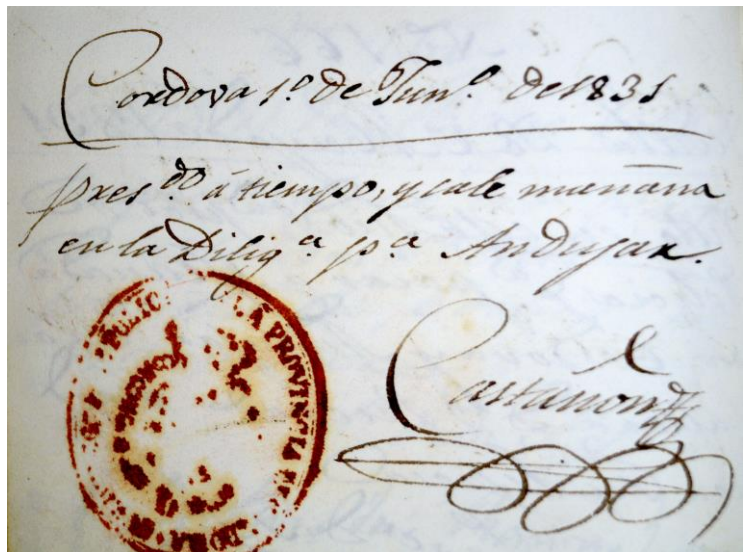 Cordova 1º de Junº de 1831
presdo á tiempo, y sale mañana
en la Diliga pa Andujar.
Castañon
POLIC LA PROVINCIA DE